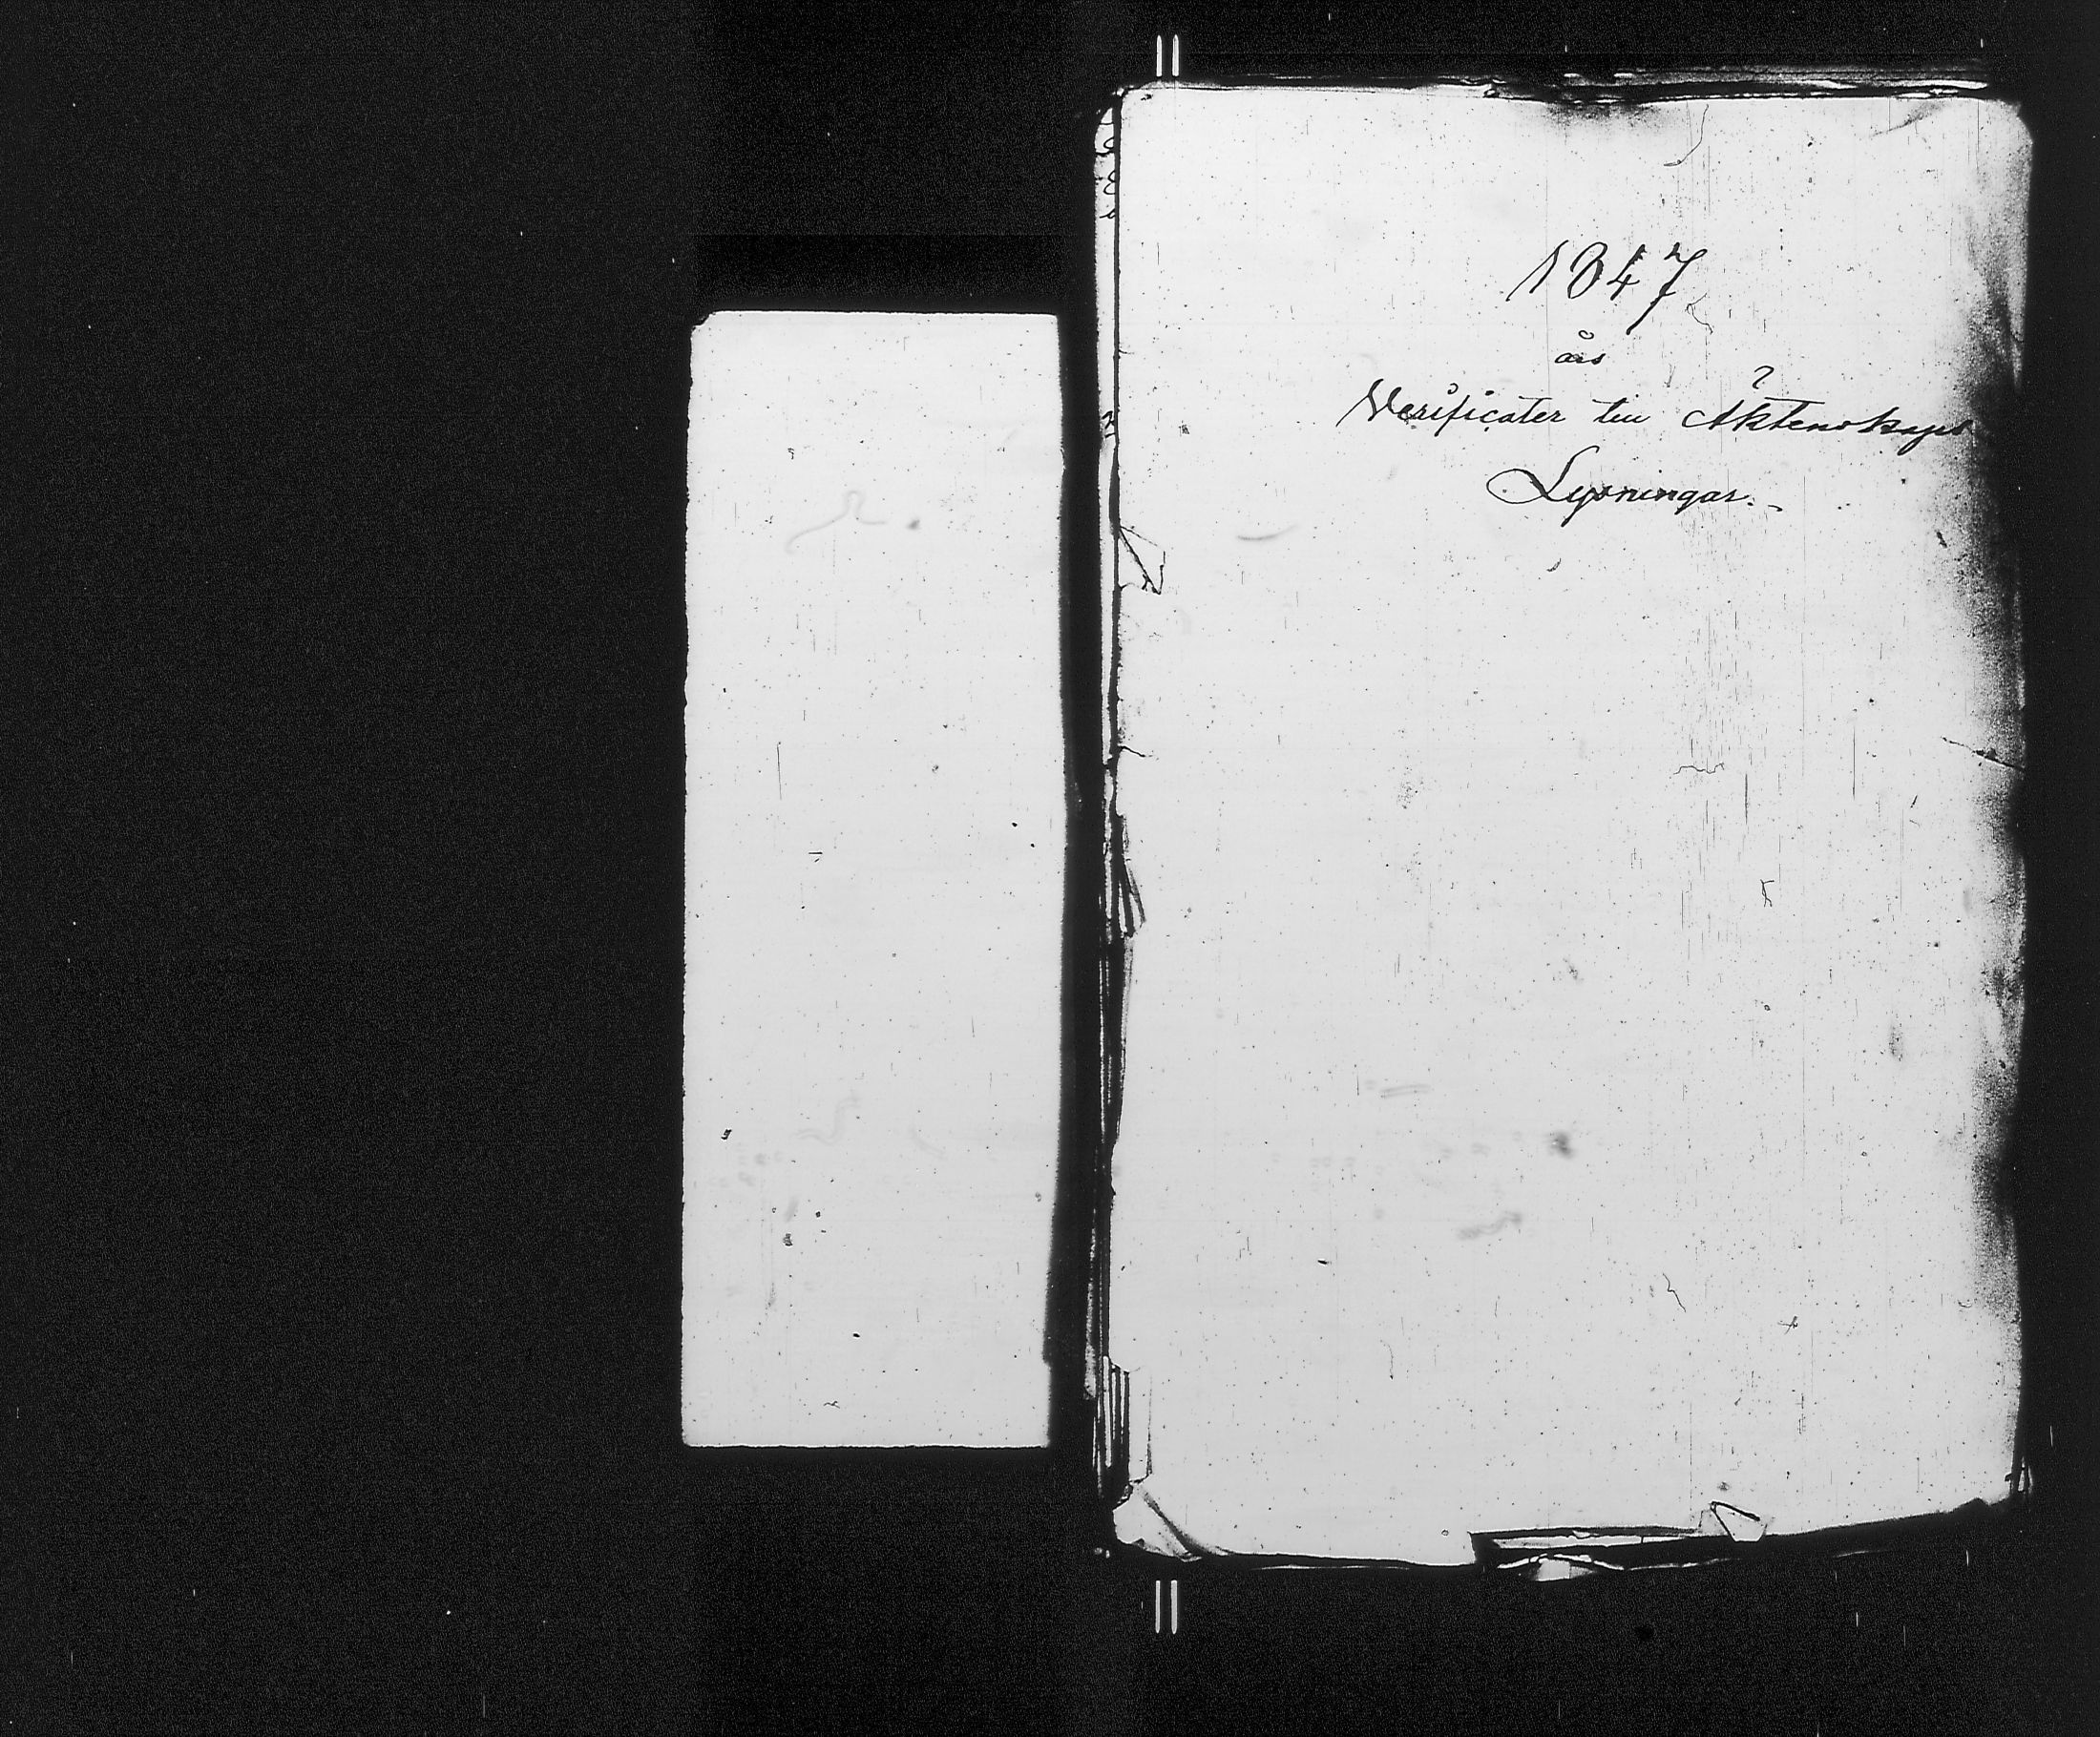 1847
års
Verificater till Äktenskaps
Lysningar.